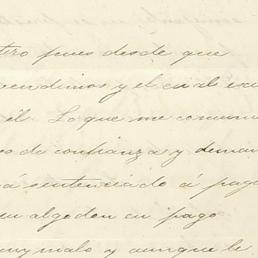 tero pues desde que
vendimos y el cual exi
él. Lo que me comuni
os de confianza y deman
á sentenciado á paga
en algodon en pago
muy malo y aunque le